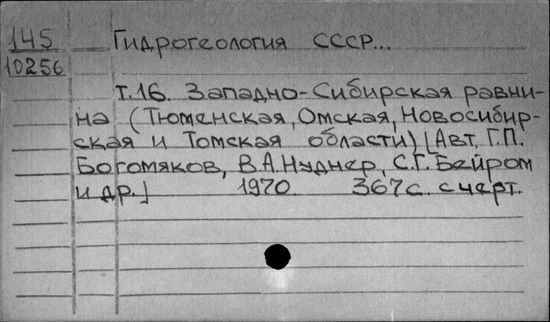 145 Гидрогеология СССР...
10256
т.16. Западно-Сибирская равни-
на (Тюменская, Омская, Новосибир-
ская и Томская области) [Авт. Г.П.
Богомяков, В.А. Нуднер, С.Г. Бейром
и др.] 1970. 367 с. с черт.